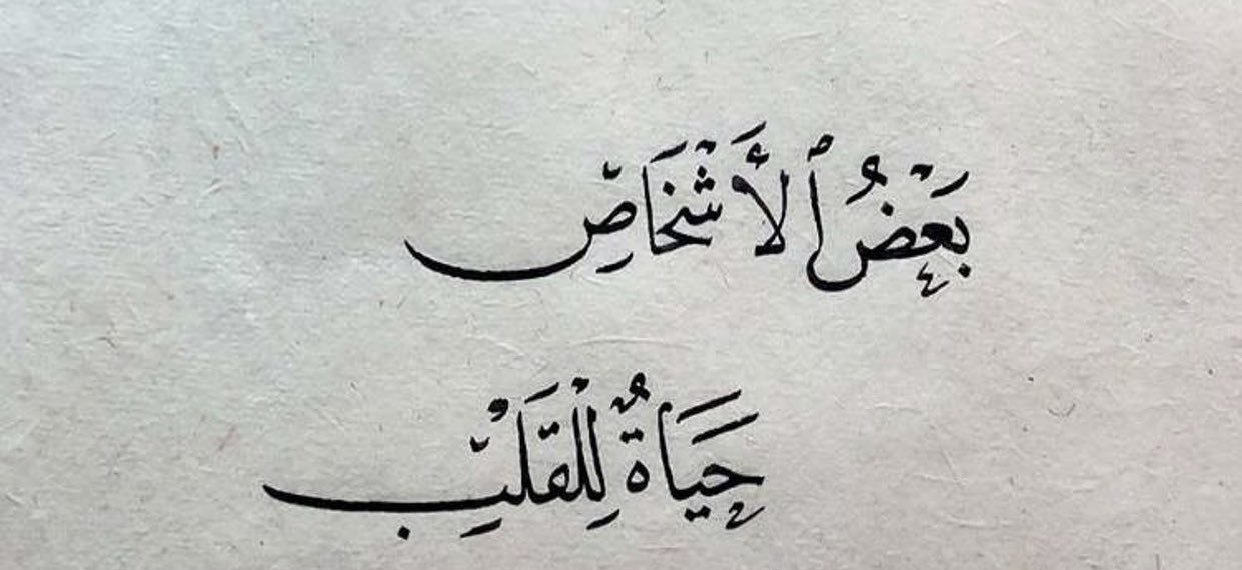 بَعْضُ ٱلأَشْخَاصِ
حَيَاةٌ لِلْقَلْبِ